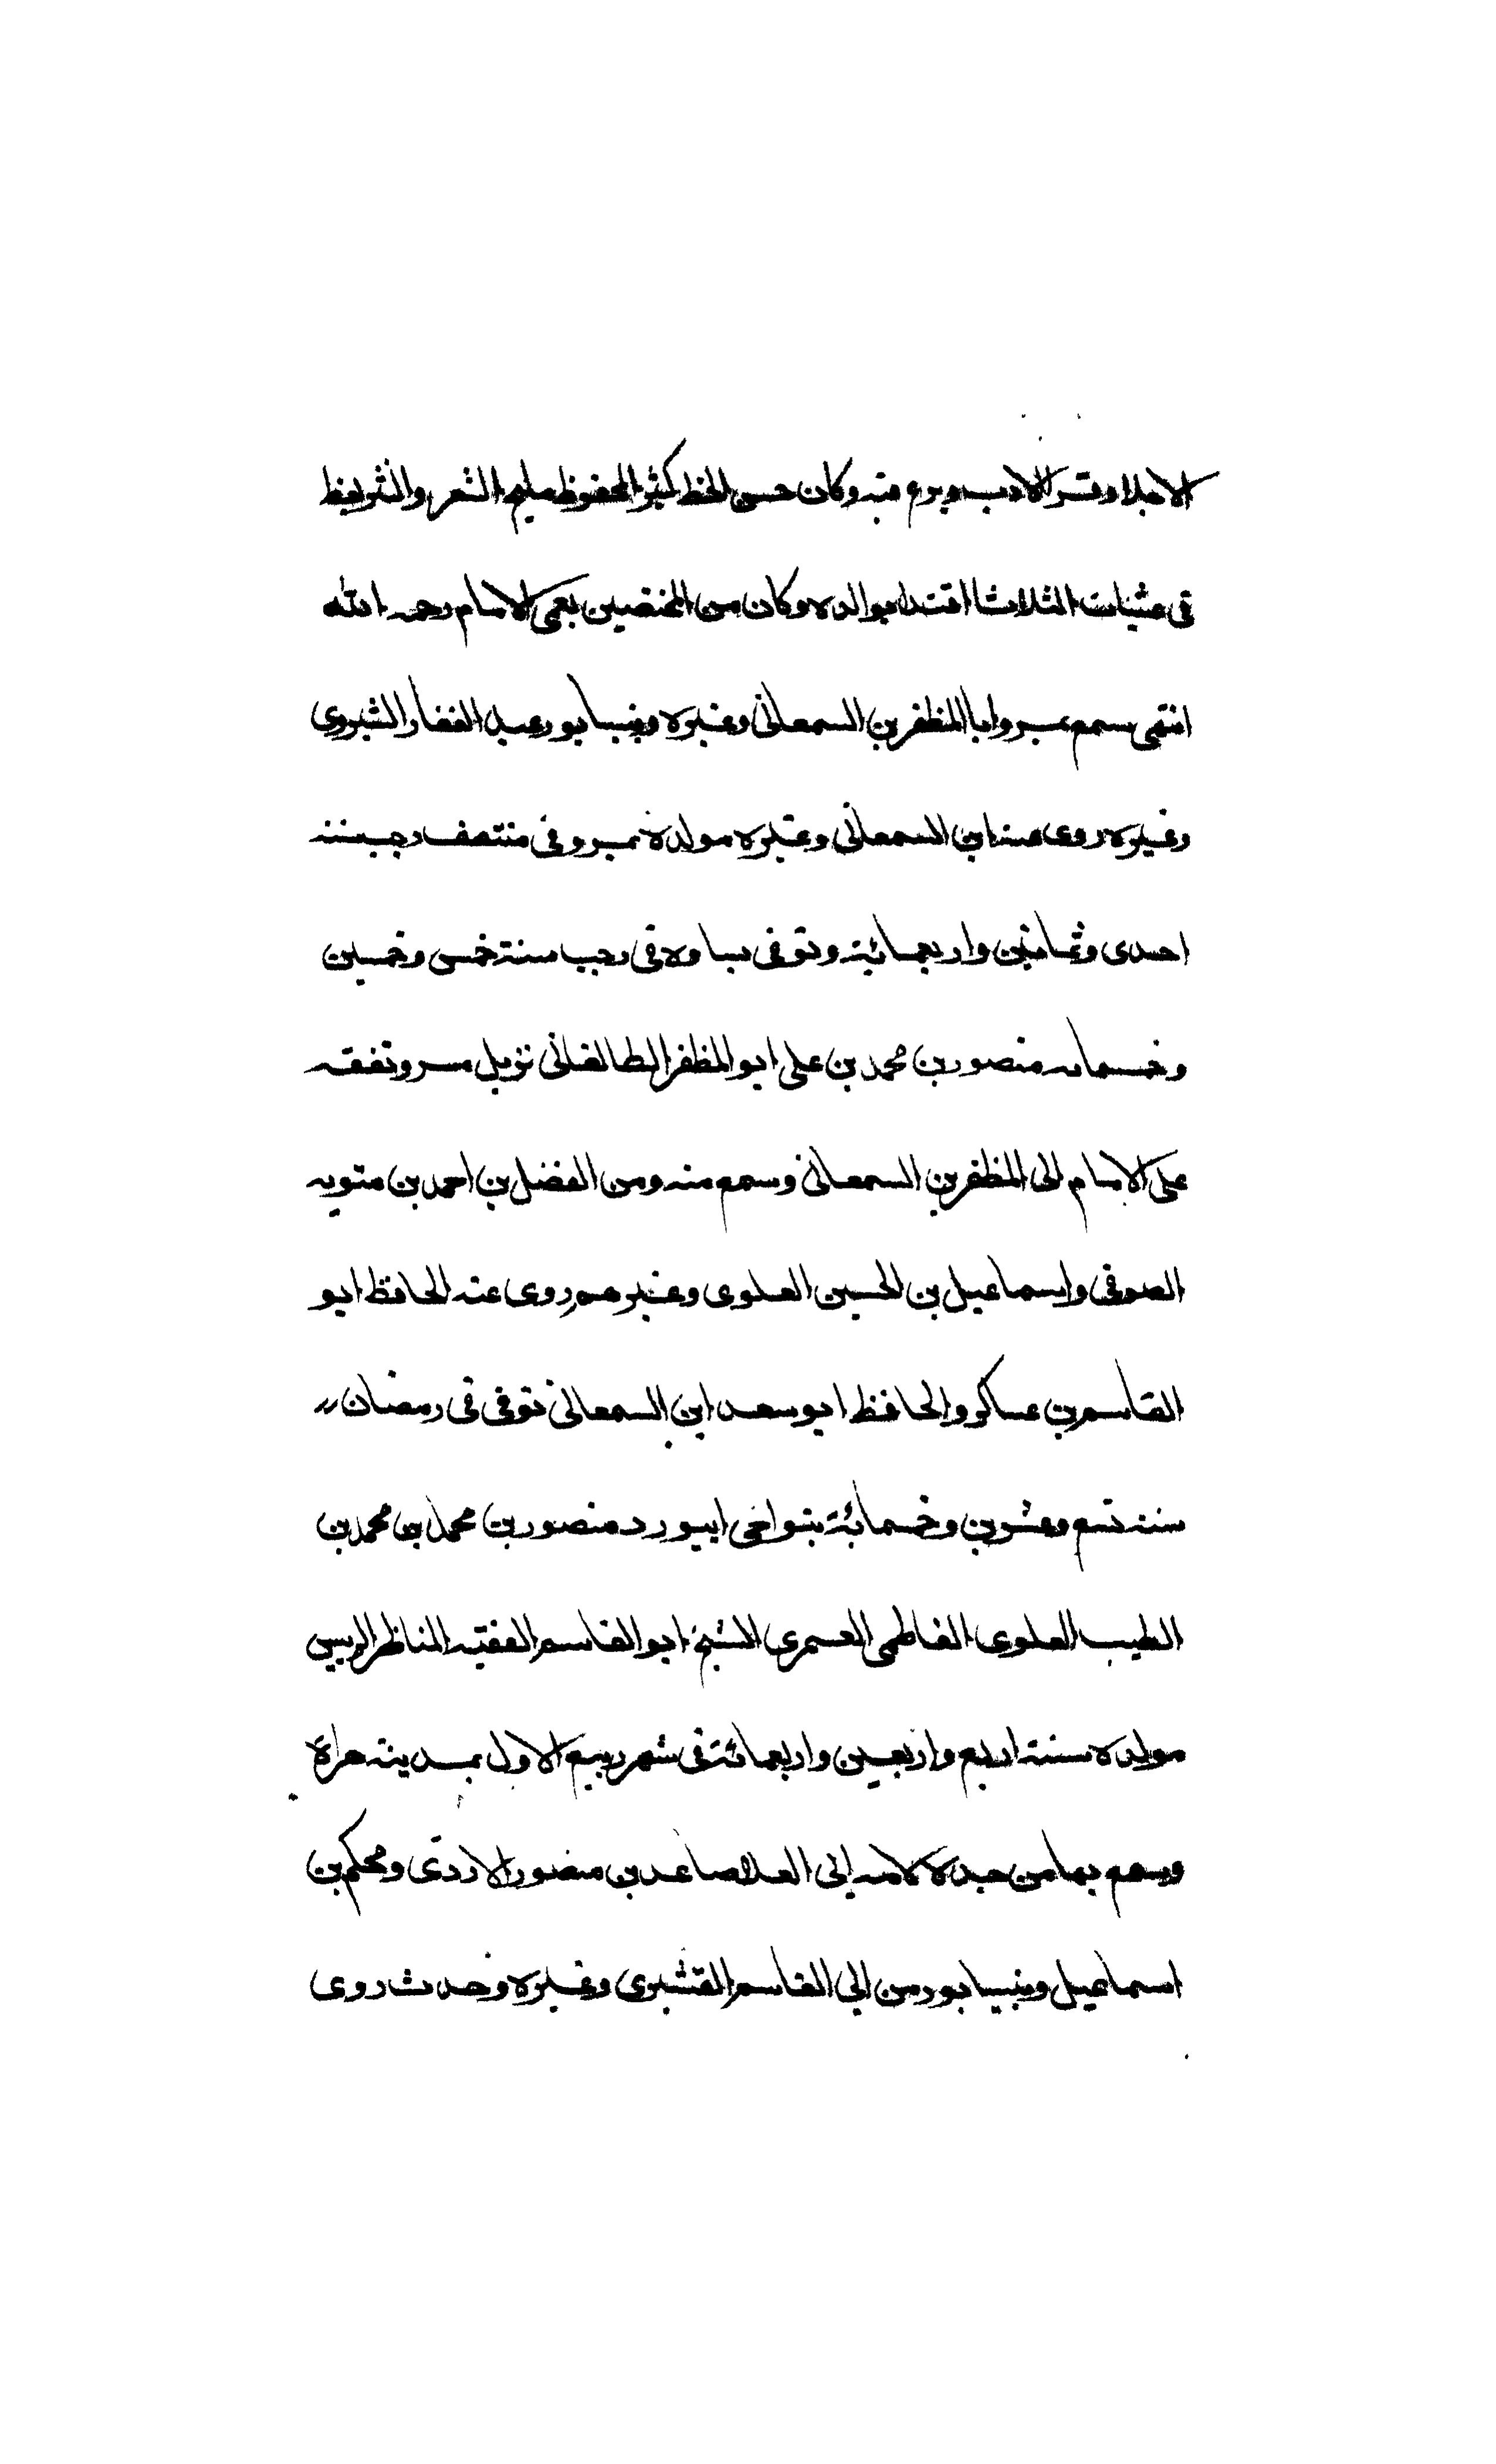 الاجلا وقرا الادب وبرع فيه وكان حسن الخط كثير المحفوظ مليح الشعر والنثر يعظ
فى عشيات الثلاثا اقتدا بوالده وكان من المختصين بعمى الامام رحمه الله
انتهى سمع بمرو ابا المظفر بن السمعانى وغيره وبنيسابور عبد الغفار الشيروى
وغيره روى عنه ابن السمعانى وغيره مولده بمرو فى منتصف رجب سنة
احدى وثمانين واربعمائة وتوفى بساوه فى رجب سنة خمس وخمسين
وخمسمائه منصور بن محمد بن على ابو المظفر الطالقانى نزيل مرو تفقه
على الامام ابى المظفر بن السمعانى وسمع منه ومن الفضل بن احمد بن متويه
الصوفى واسماعيل بن الحسين العلوى وغيرهم روى عنه الحافظ ابو
القاسم بن عساكر والحافظ ابو سعد ابن السمعانى توفى فى رمضان
سنة تسع وعشرين وخمسمائة بنواحى ابيورد منصور بن محمد بن محمد بن
الطيب العلوى الفاطمى العمرى الشيخ ابو القاسم الفقيه المناظر الرييس
مولده سنة اربع واربعين واربعمائة فى شهر ربيع الاول بمدينة هراة
وسمع بها من جده لامه ابى العلا صاعد بن منصور الازدى ومحلم بن
اسماعيل وبنيسابور من ابى القاسم القشيرى وغيره وحدث روى